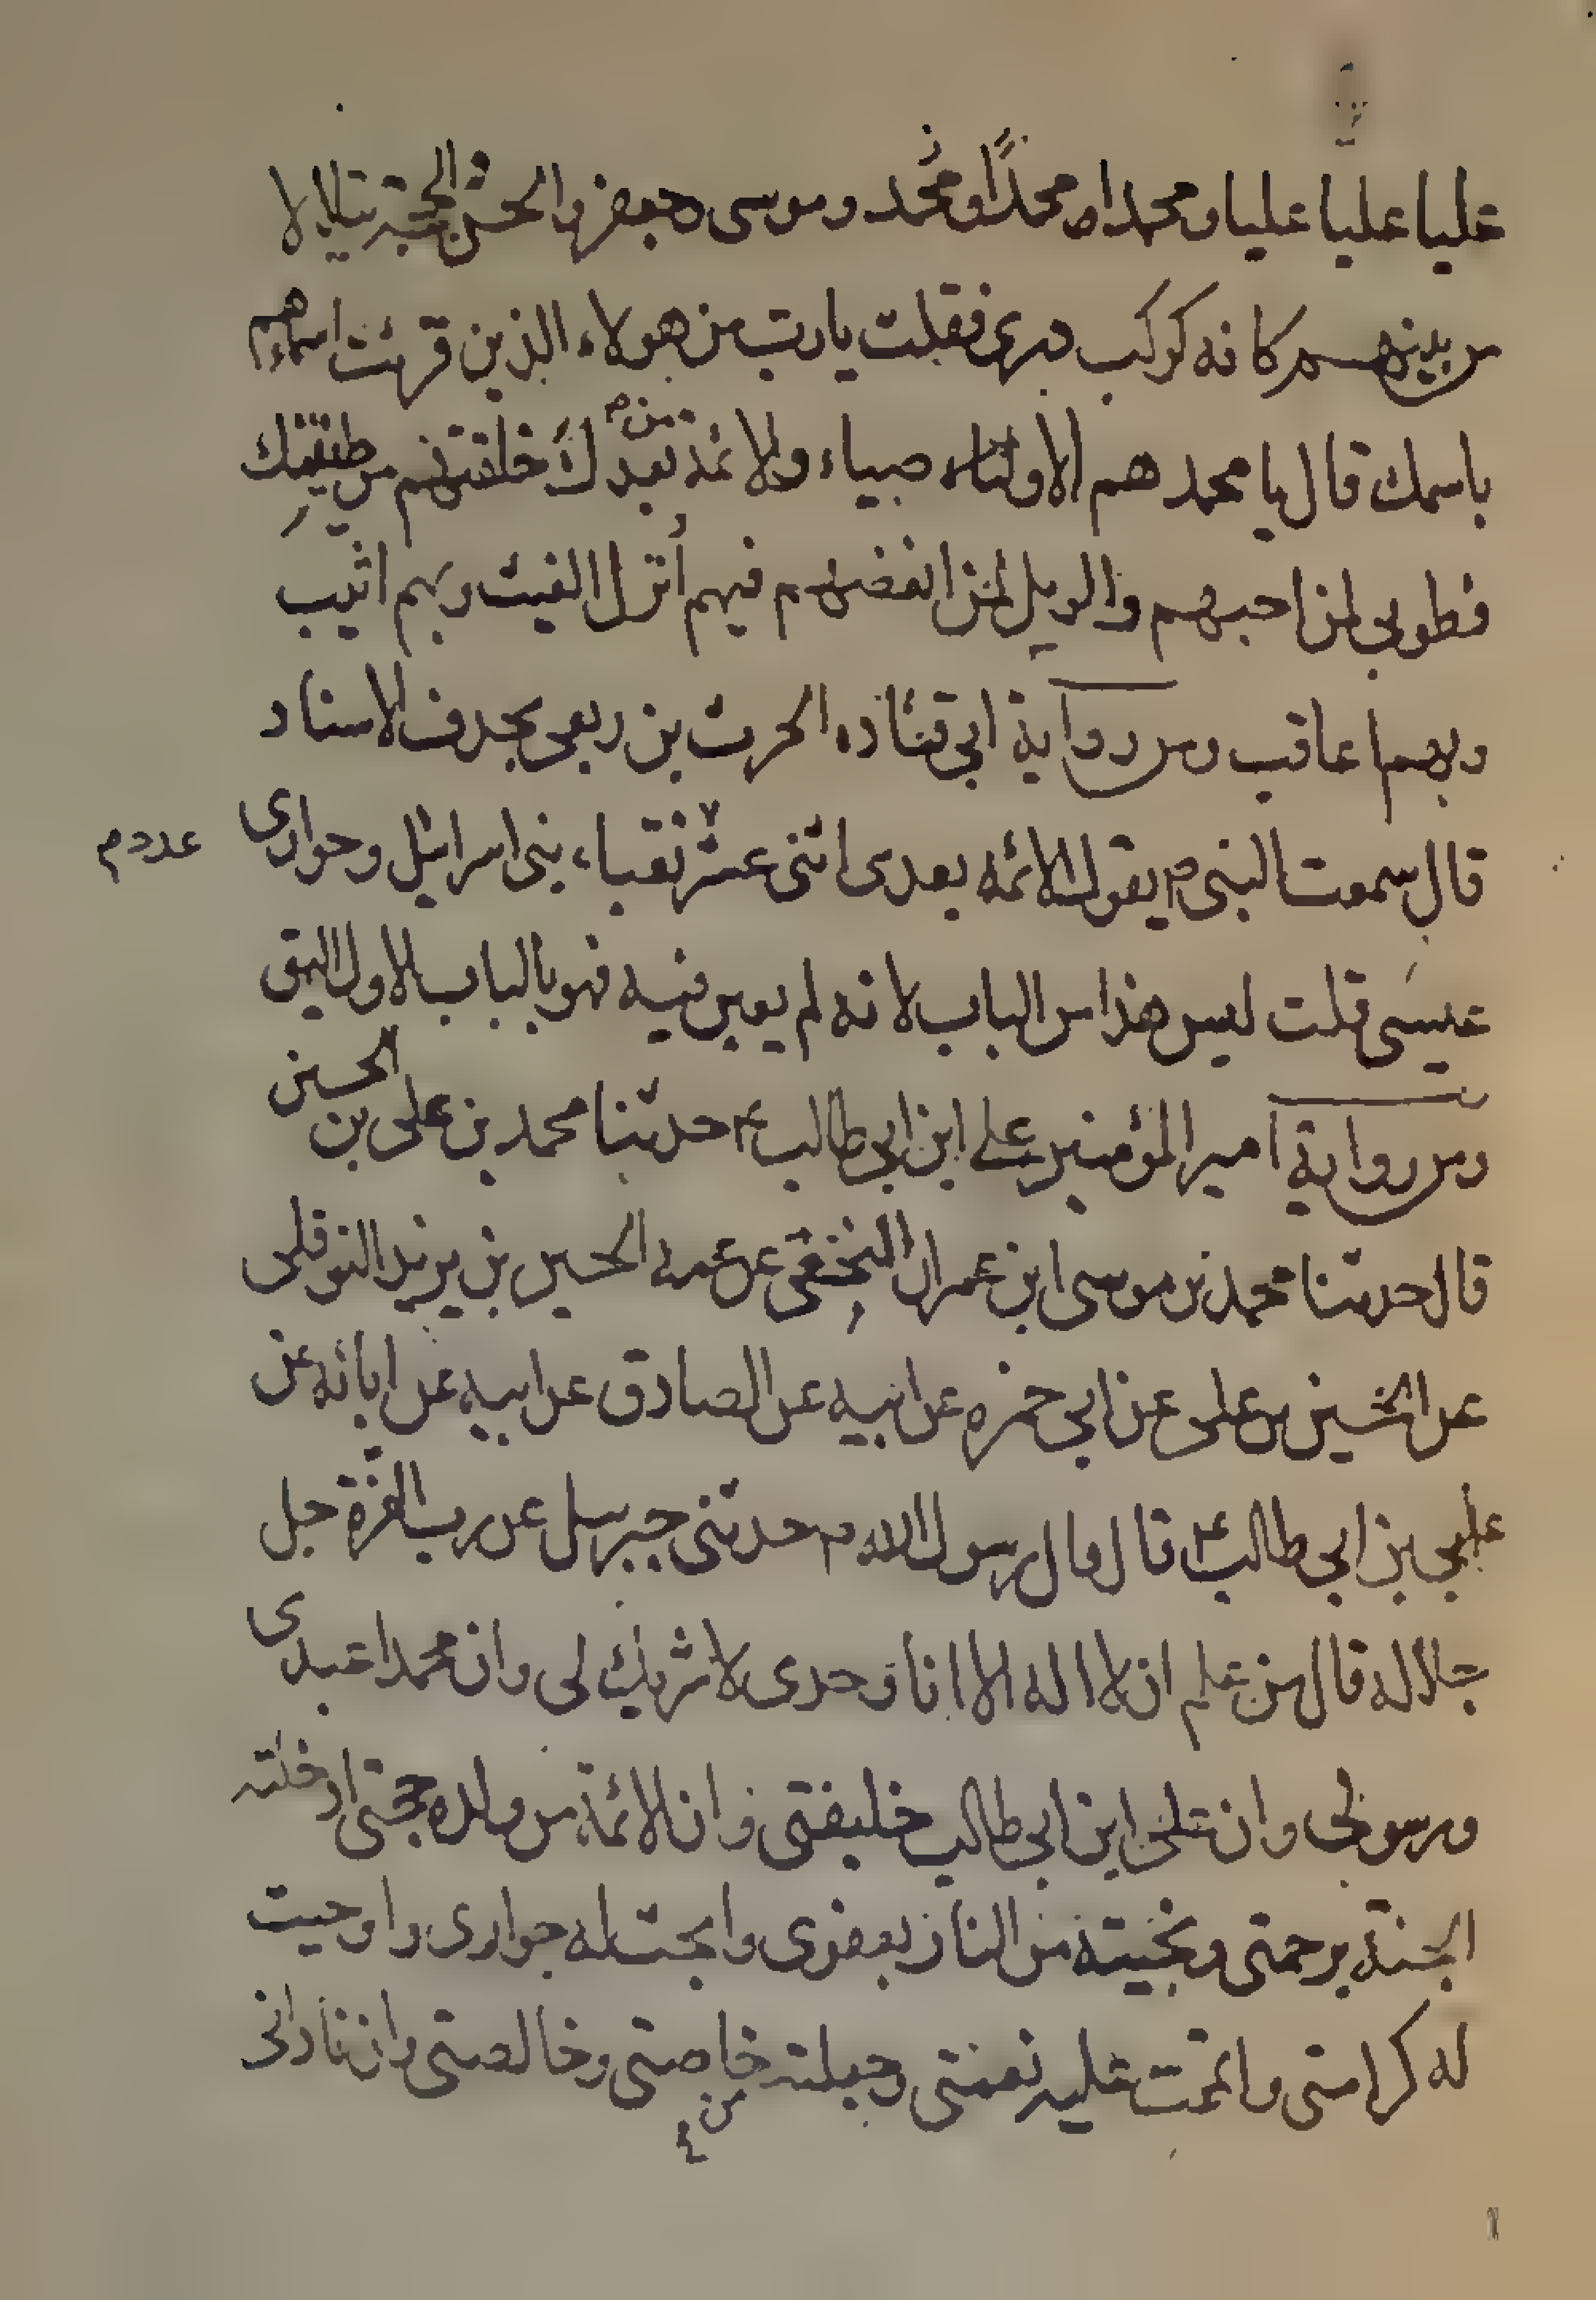 عليا عليا عليا ومحمدا ومحمدًا ومحمد وموسى وجعفر والحسن والحجة يتلالا
من بينهم كانه كوكب درى فقلت يارب من هولاء الذين قرنت اسماءهم
باسمك قال يا محمد هم الاوصياء والائمة من بعدك خلقتهم من طينتك
فطوبى لمن احبهم والويل لمن ابغضهم فبهم أنزل الغيث وبهم اثيب
وبهم اعاقب ومن رواية ابي قتاده الحرث بن ربعى بحذف الاسناد
قال سمعت النبى ص يقول الائمه بعدى اثنى عشر نقباء بنى اسرائيل وحوارى
عدد م
عيسى قلت ليس هذا من الباب لانه لم يعين فيه فهو بالباب الاول اليق
ومن رواية امير المؤمنين على ابن ابي طالب ع حدثنا محمد بن على بن الحسين
قال حدثنا محمد بن موسى ابن عمران النخعى عن عمه الحسين بن يزيد النوفلى
عن الحسين بن على عن ابي حمزه عن ابيه عن الصادق عن ابيه عن ابائه عن
على بن ابي طالب ع قال قال رسول الله ص حدثنى جبرئيل عن رب العزة جل
جلاله قال من علم ان لا اله الا انا وحدى لا شريك لى وان محمدا عبدى
ورسولى وان على ابن ابي طالب خليفتى وان الائمة من ولده حججى ادخلته
الجنة برحمتى ونجيته من النار بعفوى وابحت له جوارى واوجبت
له كرامتى واتممت عليه نعمتى وجعلته من خاصتى وخالصتى وان نادانى